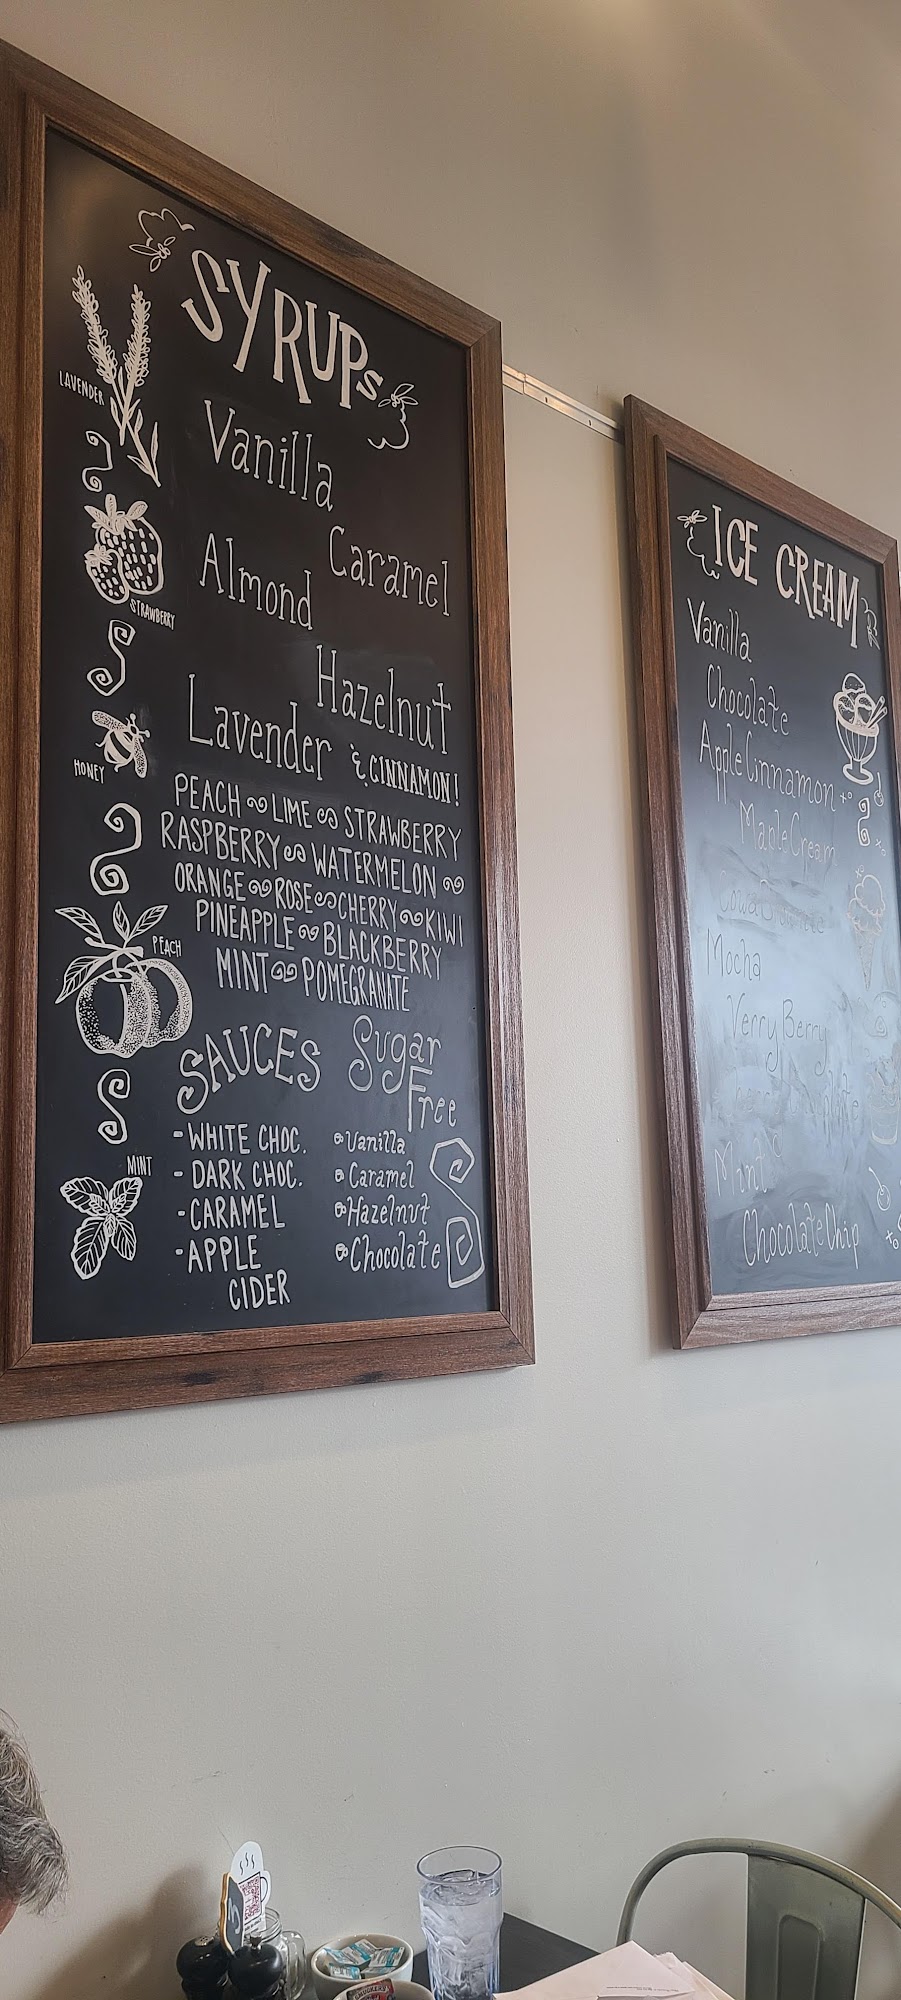 SYRUPs
LAVENDER
Vanilla
Caramel
Almond
STRAWBERRY
Hazelnut
Lavender & CINNAMON!
HONEY
PEACH LIME STRAWBERRY
RASPBERRY WATERMELON
ORANGE ROSE CHERRY KIWI
PINEAPPLE BLACKBERRY
MINT POMEGRANATE
PEACH
SAUCES
- WHITE CHOC.
- DARK CHOC.
- CARAMEL
- APPLE
CIDER
MINT
Sugar
Free
Vanilla
Caramel
Hazelnut
Chocolate
ICE CREAM
Vanilla
Chocolate
Apple Cinnamon
Maple Cream
Mocha
Verry Berry
Mint
Chocolate Chip